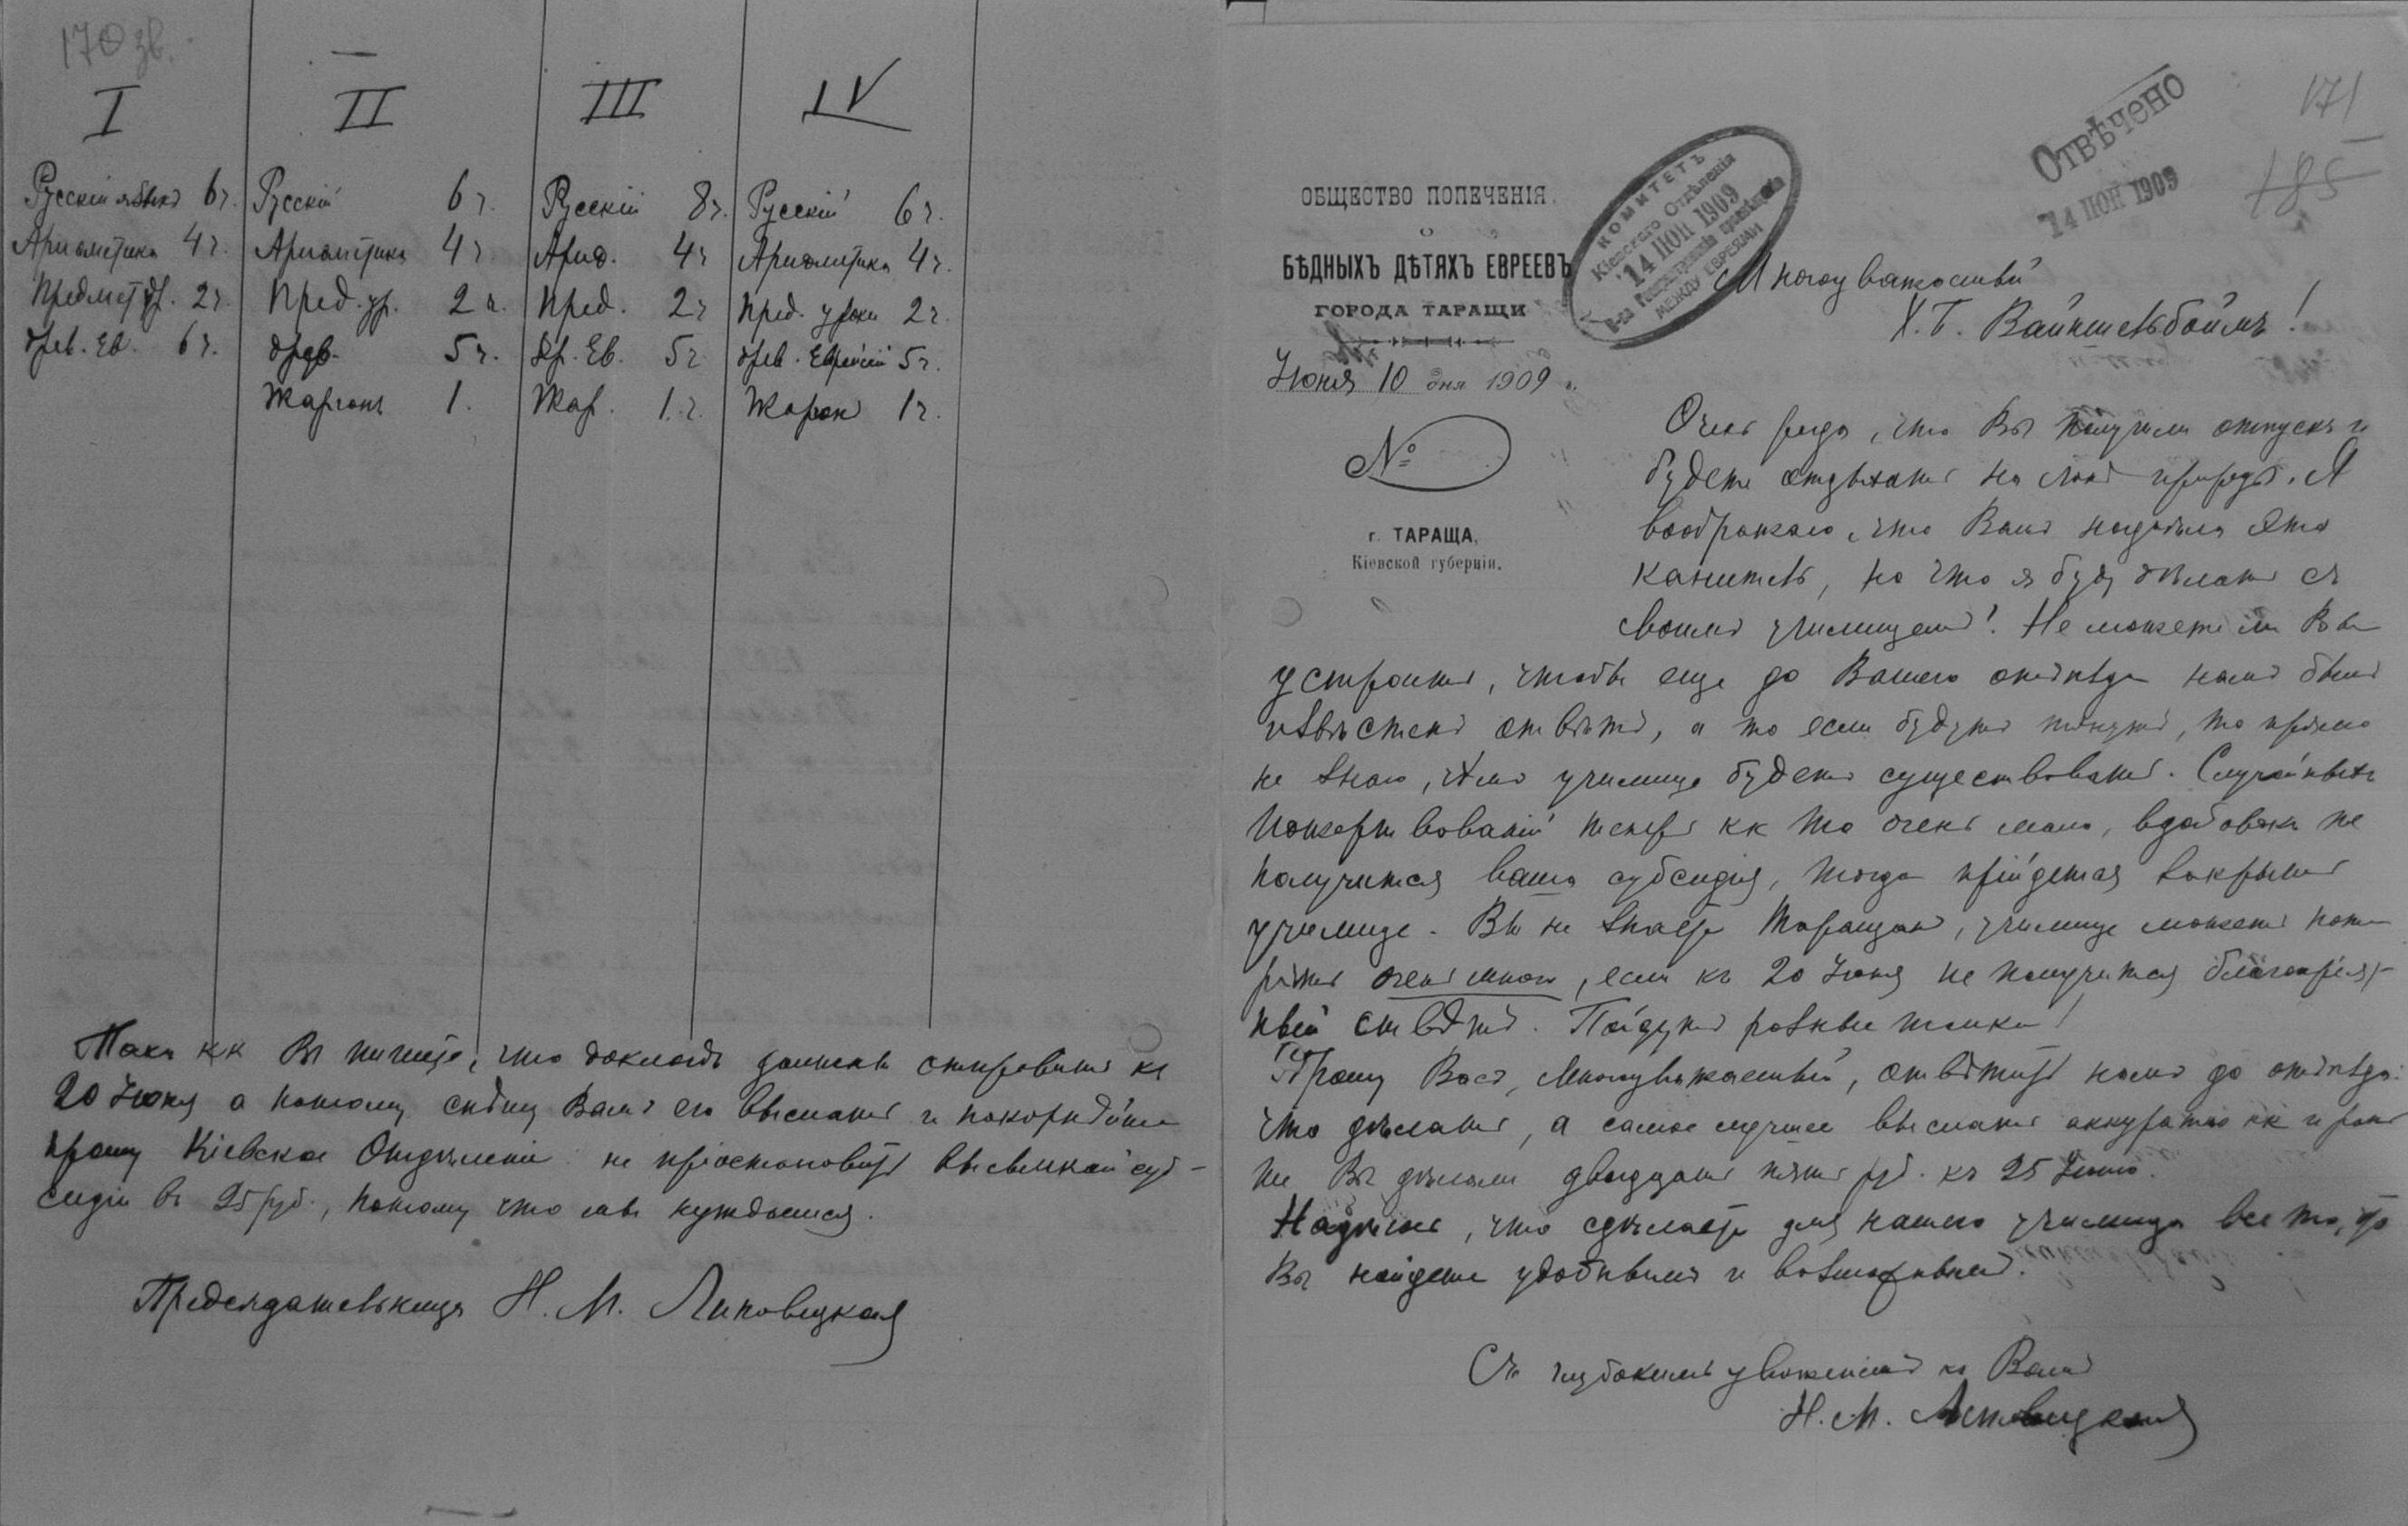 170 зв.
I II III IV
Русскій языкъ 6 ч. Русскій 6 ч. Русскій 8 ч. Русскій 6 ч.
Ариѳметика 4 ч. Ариѳметика 4 ч. Ариѳ. 4 ч Ариѳметика 4 ч.
Предмет. ур. 2 ч. Пред. ур. 2 ч. Пред. 2 ч Пред. уроки 2 ч.
Древ. Ев. 6 ч. Древ. 5 ч. Др. Ев. 5 ч Древ. Еврейскій 5 ч.
Жаргонъ 1. Жар. 1 ч. Жаргон 1 ч.
Такъ кк Вы пишете, что докладъ должны отправить къ
20 Іюня а потому спѣшу Вамъ его выслать и покорнѣйше
прошу Кіевское Отдѣленіе не пріостановить высылкой суб-
сидіи въ 25 руб., потому что мы нуждаемся.
Предсѣдательница Н. М. Липовецкая
171
185
ОТВѢЧЕНО
14 ІЮН 1909
КОМИТЕТЪ
Кіевскаго Отдѣленія
14 ІЮН 1909
О-ва Распространенія просвѣщенія
МЕЖДУ ЕВРЕЯМИ
ОБЩЕСТВО ПОПЕЧЕНІЯ
О
БѢДНЫХЪ ДѢТЯХЪ ЕВРЕЕВЪ
ГОРОДА ТАРАЩИ
Іюня 10 дня 1909 г.
№
г. ТАРАЩА,
Кіевской губерніи.
Многоуважаемый
Х. Б. Вайнштейбоймъ!
Очень рада, что Вы получили отпускъ и
будете отдыхать на лонѣ природы. Я
воображаю, что Вамъ надоѣла эта
канитель, но что я буду дѣлать съ
своимъ училищемъ! Не можете ли Вы
устроить, чтобы еще до Вашего отъѣзда намъ былъ
извѣстенъ отвѣтъ, а то если будутъ тянуть, то прямо
не знаю, чѣмъ училище будетъ существовать. Случайныхъ
пожертвованій теперь кк то очень мало, вдобавокъ не
получится ваша субсидія, тогда прійдется закрыть
училище. Вы не знаете Таращан, училище можетъ поте
рять очень много, если къ 20 Іюня не получится благопріят-
ный отвѣтъ. Пойдутъ розные толки!
Прошу Васъ, Многоуважаемый, отвѣтить намъ до отъѣзда
что дѣлать, а самое лучшее выслать аккуратно кк и рань
ше Вы дѣлали двадцать пять руб. къ 25 Іюню.
Надѣюсь, что сдѣлаете для нашего училища все то, что
Вы найдете удобнымъ и возможнымъ.
Съ глубокимъ уваженіемъ къ Вамъ
Н. М. Липовецкая